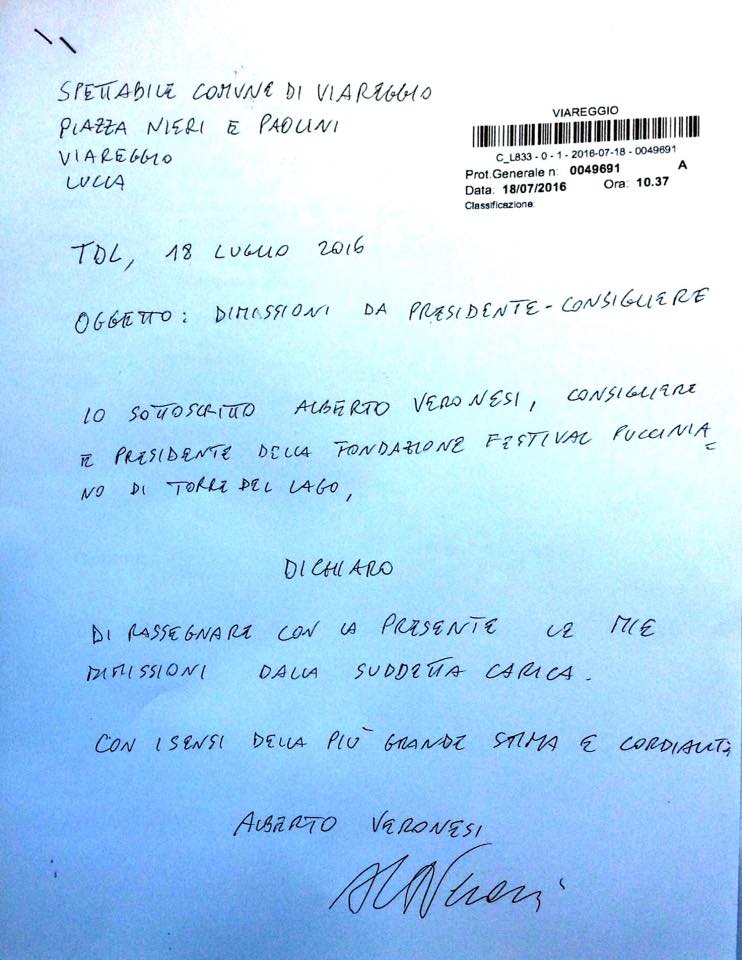 SPETTABILE COMUNE DI VIAREGGIO
PIAZZA NIERI E PAOLINI
VIAREGGIO
LUCCA
VIAREGGIO
C_L833 - 0 - 1 - 2016-07-18 - 0049691
Prot.Generale n: 0049691 A
Data: 18/07/2016 Ora: 10.37
Classificazione:
TDL, 18 LUGLIO 2016
OGGETTO: DIMISSIONI DA PRESIDENTE-CONSIGLIERE
IO SOTTOSCRITTO ALBERTO VERONESI, CONSIGLIERE
E PRESIDENTE DELLA FONDAZIONE FESTIVAL PUCCINIA=
NO DI TORRE DEL LAGO,
DICHIARO
DI RASSEGNARE CON LA PRESENTE LE MIE
DIMISSIONI DALLA SUDDETTA CARICA.
CON I SENSI DELLA PIÙ GRANDE STIMA E CORDIALITÀ
ALBERTO VERONESI